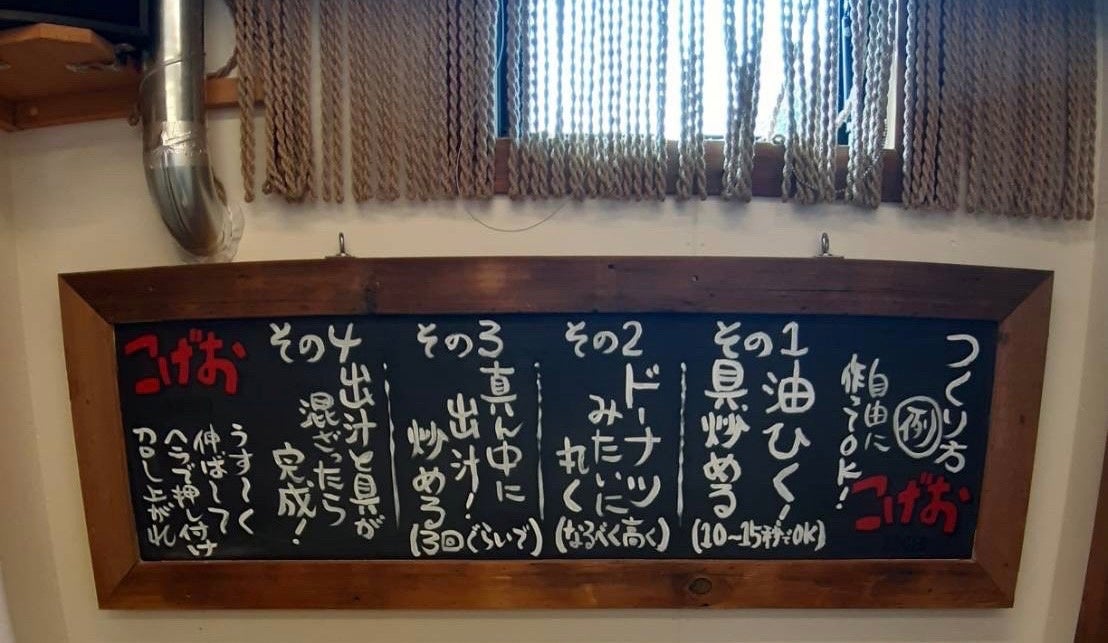 つくり方
例
自由に
作ってOK!
こげお
その1
油ひく!
具炒める
(10〜15秒でOK)
その2
ドーナツ
みたいに
丸く
(なるべく高く)
その3
真ん中に
出汁!
炒める
(3回ぐらいで)
その4
出汁と具が
混ざったら
完成!
こげお
うす〜く
伸ば〜して
ヘラで押し付け
召し上がれ